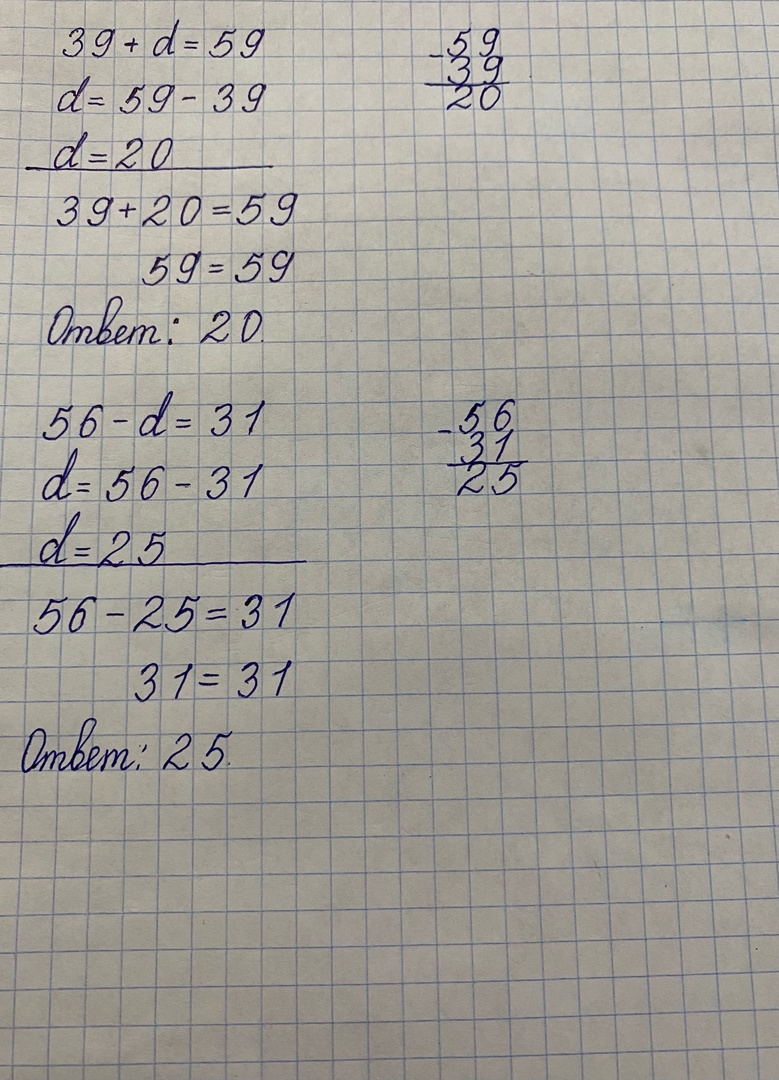 39 + d = 59
d = 59 - 39
d = 20
39 + 20 = 59
59 = 59
Ответ: 20.
- 59
39
20
56 - d = 31
d = 56 - 31
d = 25
56 - 25 = 31
31 = 31
Ответ: 25.
- 56
31
25